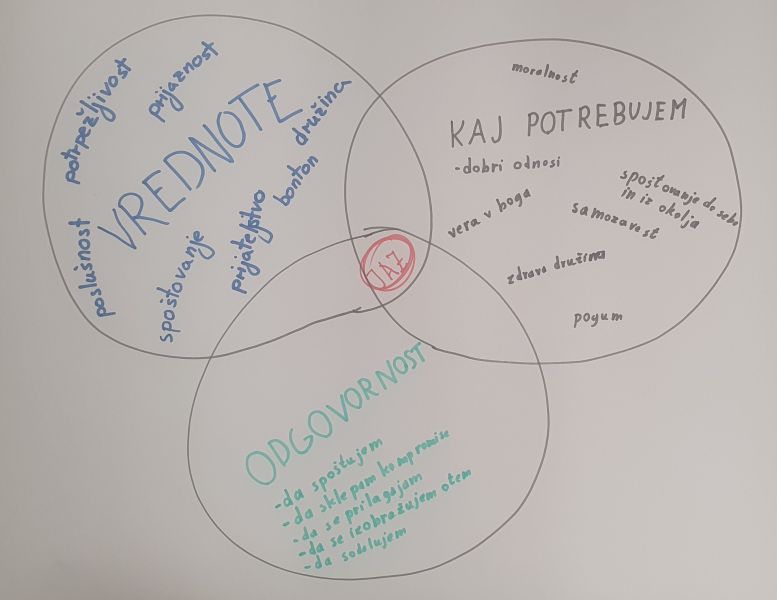 VREDNOTE
potrpežljivost
prijaznost
družina
bonton
prijateljstvo
spoštovanje
poslušnost
KAJ POTREBUJEM
moralnost
-dobri odnosi
spoštovanje do sebe
in iz okolja
samozavest
vera v boga
zdrava družina
pogum
JAZ
ODGOVORNOST
-da spoštujem
-da sklepam kompromise
-da se prilagajam
-da se izobražujem otem
-da sodelujem